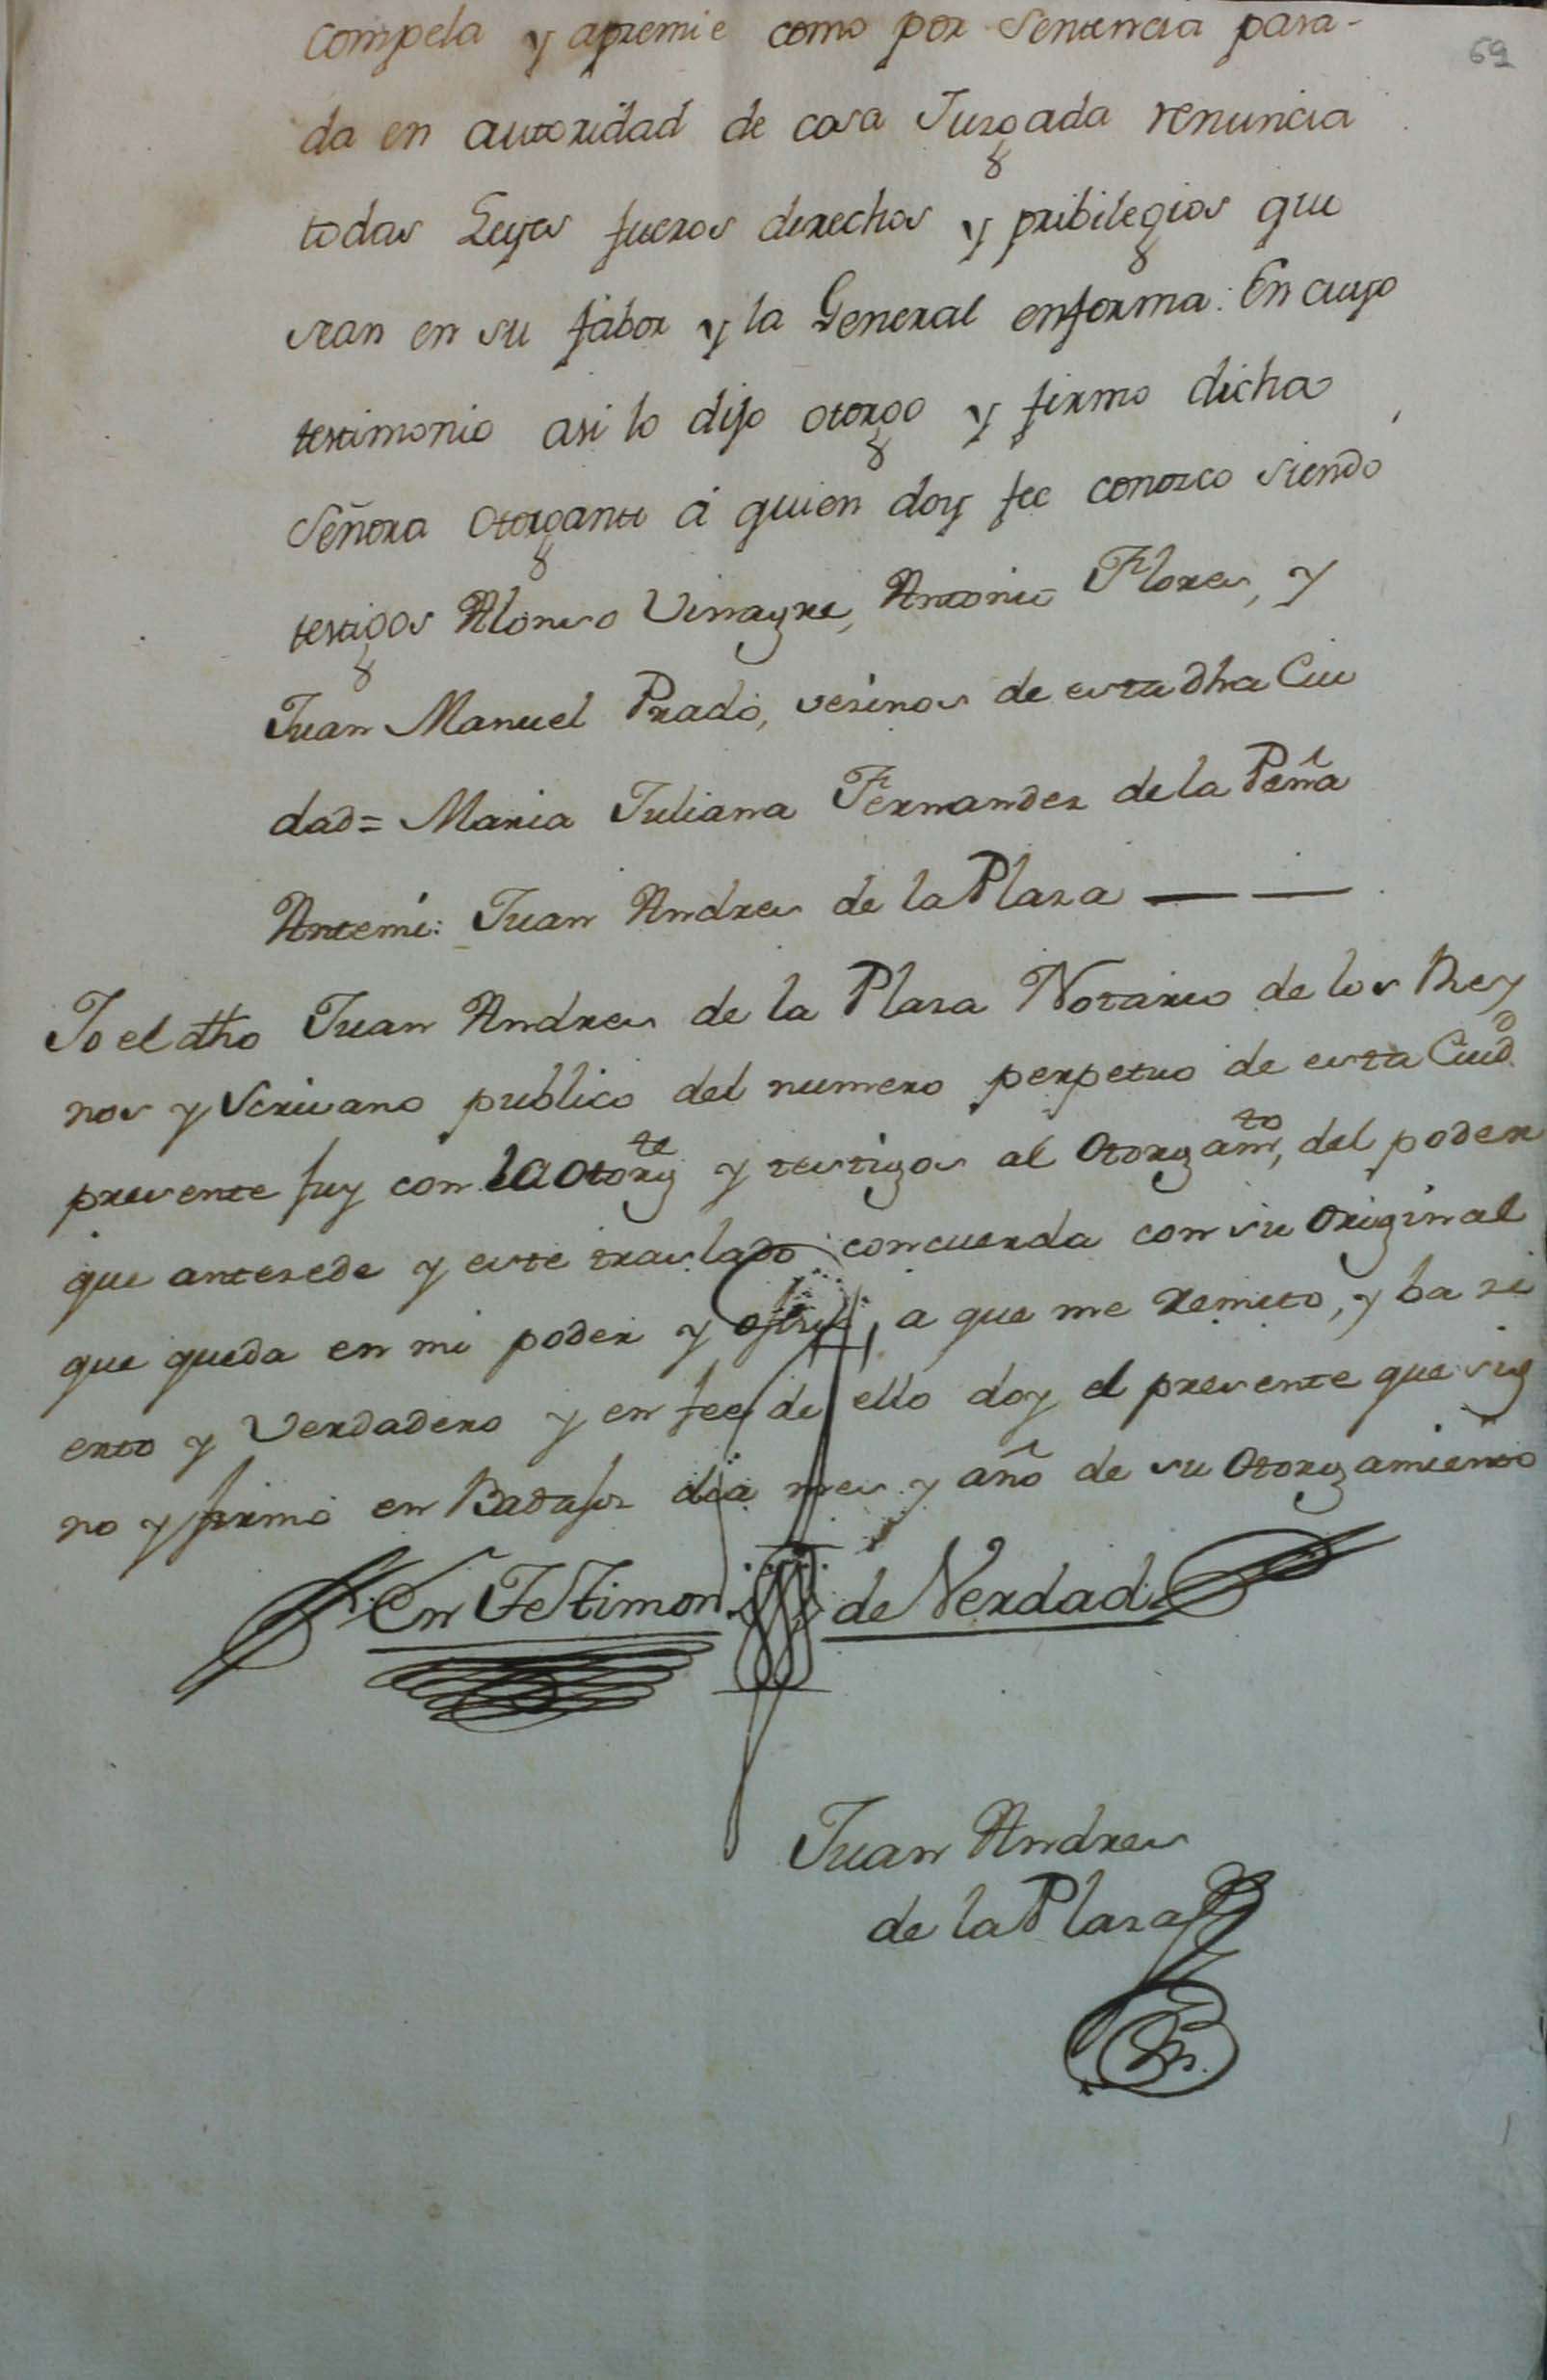 69
Compela y apremie como por Sentencia pasa-
da en autoridad de cosa Jusgada renuncia
todas Leyes fueros derechos y pribilegios que
sean en su fabor y la General enforma: En cuyo
testimonio asi lo dijo otorgo y firmo dicha
Señora Otorgante á quien doy fee conosco siendo
testigos Alonso Vinagre, Antonio Flores, y
Juan Manuel Prado, vesinos de esta dha Ciu
dad= Maria Juliana Fernandez de la Peña
Antemi: Juan Andres de la Plasa
Yo el dho Juan Andres de la Plasa Notario de los Rey
nos y Scrivano publico del numero perpetuo de esta Ciud.
presente fuy con la Otorgte y testigos al Otorgamto, del poder
que antesede y este traslado concuerda con su Original
que queda en mi poder y a que me Remito, y ba si
erto y Verdadero y en fee de ello doy el presente que sig
no y firmo en Badajos dia mes y año de su Otorgamiento
En Testimon de Verdad
Juan Andres
de la Plasa